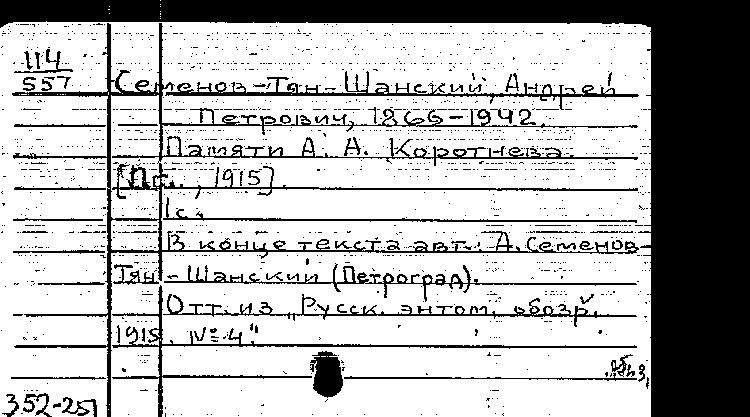 114
557
Семенов-Тян-Шанский, Андрей
Петрович, 1866-1942.
Памяти А. А. Коротнева.
[Пг., 1915].
1 с.
В конце текста авт.: А. Семенов-
Тян-Шанский (Петроград).
Отт. из „Русск. энтом. обозр.
1915. № 4".
352-251